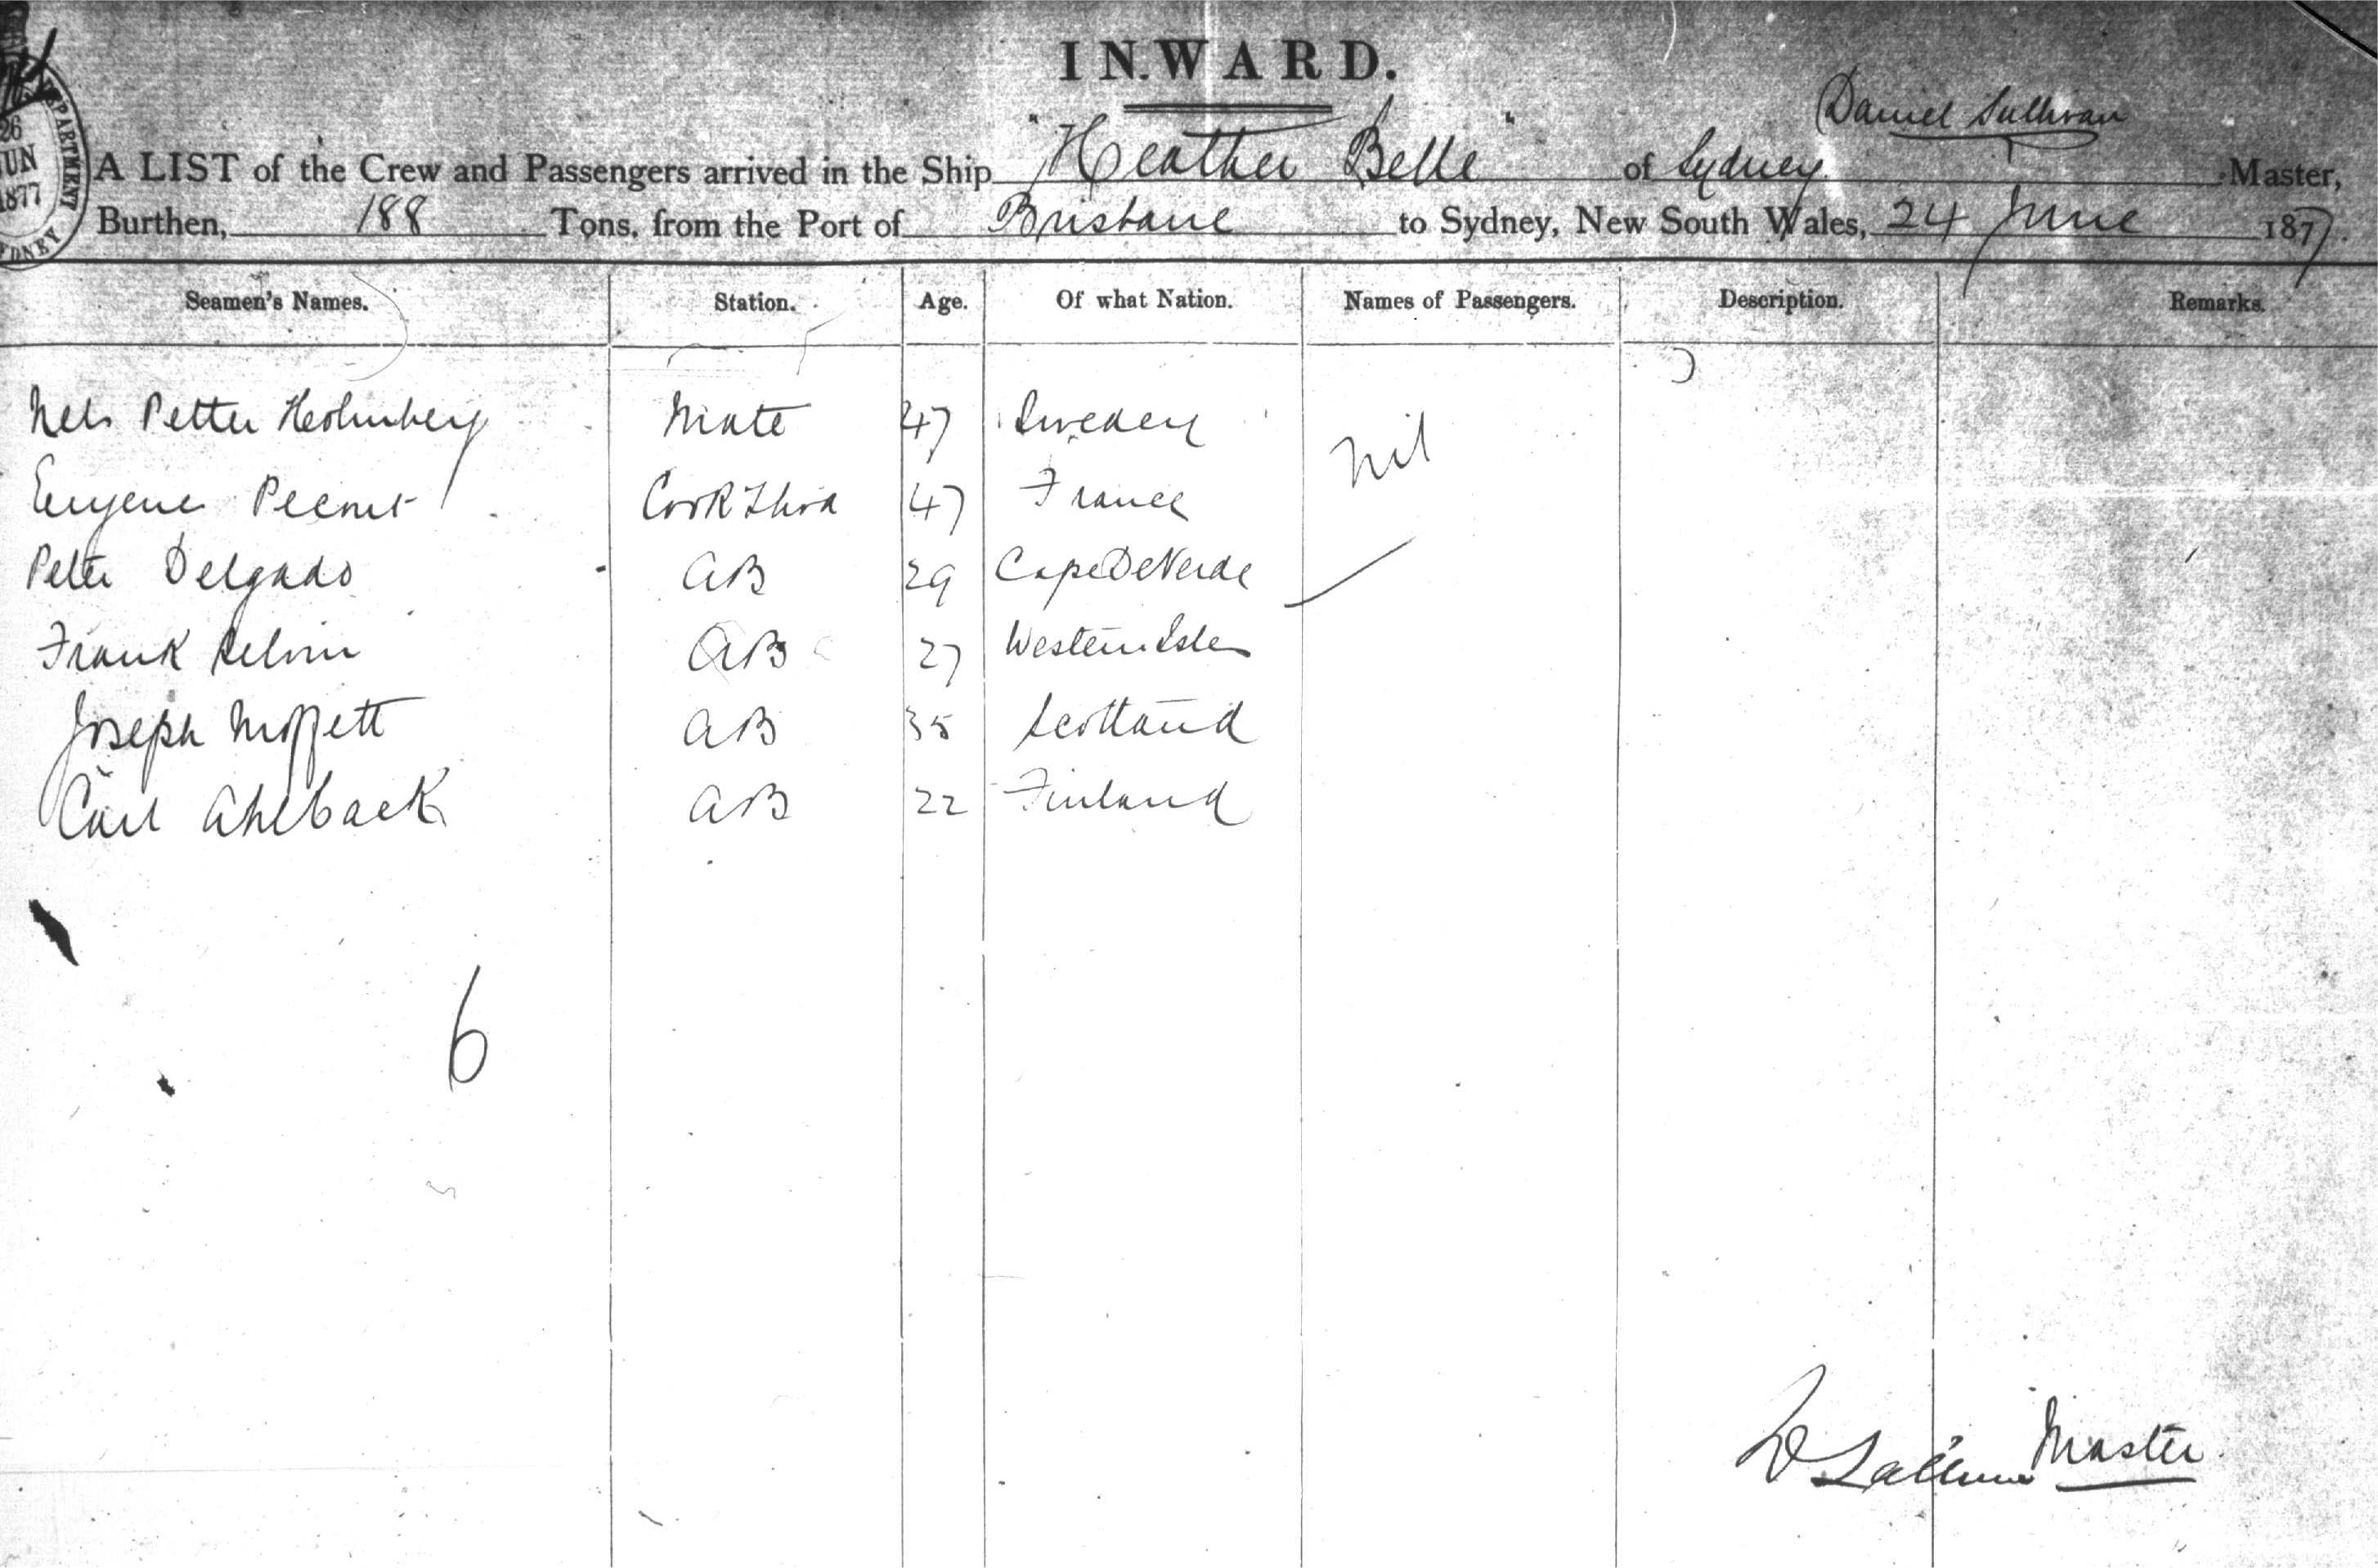 INWARD.
Daniel Sullivan
A LIST of the Crew and Passengers arrived in the Ship "Heather Belle" of Sydney Master,
Burthen, 188 Tons, from the Port of Brisbane to Sydney, New South Wales, 24 June 1877.
PARTMENT
26
JUN
1877
SYDNEY
Seamen's Names. Station. Age. Of what Nation. Names of Passengers. Description. Remarks.
Nels Petter Mate 47 Sweden
Nil
Eugene 47 France
Peter Delgado AB 29 Cape De Verde
Frank AB 27 Western Isles
Joseph Moffett AB 35 Scotland
Carl Ahlback AB 22 Finland
6
D Sullivan Master